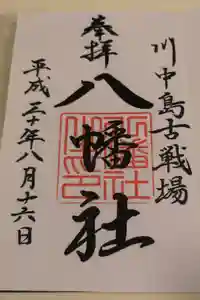 川中島古戦場
奉拝
八幡社
平成三十年八月十六日